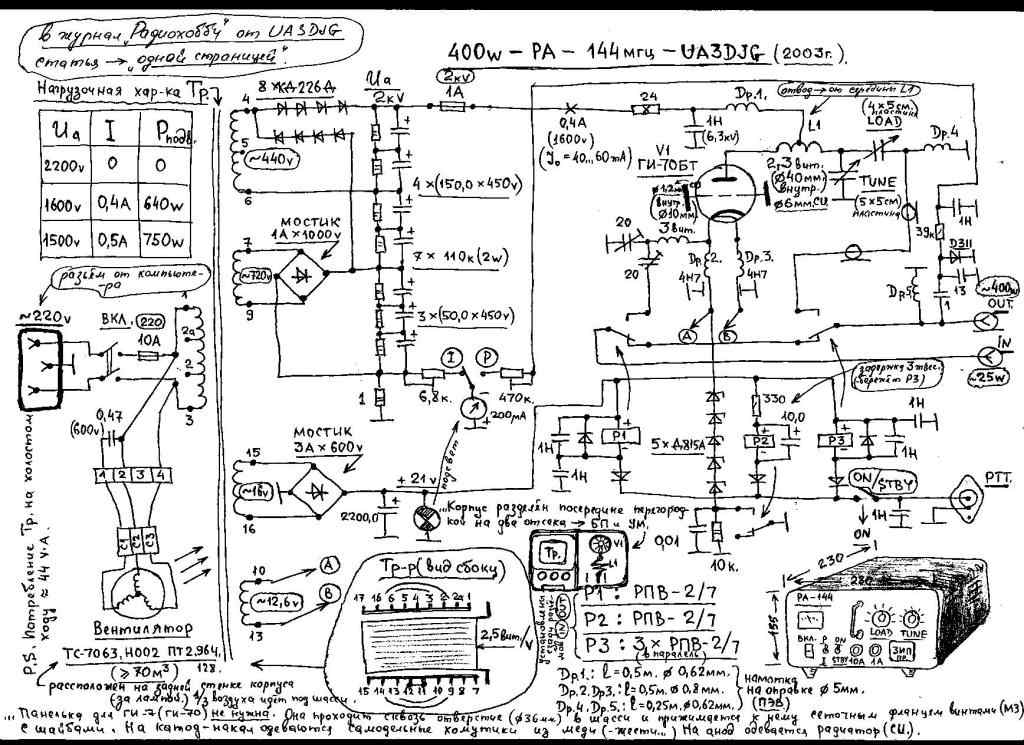 в журнал "Радиохобби" от UA3DJG
статья → "одной страницей".
400w – PA – 144мгц – UA3DJG (2003г.)
Нагрузочная хар-ка Тр.
Ua I Pподв.
2200v 0 0
1600v 0,4A 640w
1500v 0,5A 750w
разъём от компьюте-
-ра
~220v
ВКЛ. (220)
10A
1
2а
2
3
0,47
(600v)
1 2 3 4
C1 C2 C3
Вентилятор
ТС-7063, Н002 ПТ2,964,
(≥70м³) 128.
P.S. Потребление Тр. на холостом
ходу ≈ 44 V·A.
4
5
~440v
6
8×КД226Д
Ua
2kV
2kv
1A
0,4A
(1600v)
(Jo = 40...60mA)
24
1Н
(6,3kv)
Др.1.
отвод → от середины L1
L1
(4×5см.
пластина
LOAD
Др.4
V1
ГИ-70БТ
2,3 вит.
Ø40мм.
внутр.
Ø6мм.
TUNE
(5×5см)
пластина
4×(150,0×450v)
7
~720v
9
МОСТИК
1A×1000v
7×110к(2w)
3×(50,0×450v)
1
Ø1,2м
внутр.
Ø10мм.
3 вит.
20
20
Др.2.
4Н7
Др.3.
4Н7
А
В
39к
1Н
Д311
Др.5
1
13
~400w
OUT.
IN
~25w
I
P
6,8к.
470к.
200mA
+
подсвет
МОСТИК
3A×600v
15
~18v
16
+21v
2200,0
1Н
1Н
P1
5×Д815А
330
P2
10,0
P3
задержка 3mсес.
(бережёт P3)
1Н
1Н
ON/
STBY
1Н
PTT.
ON
0,01
10к.
...Корпус разделён посередине перегород-
кой на два отсека → БП и УМ.
Тр.
V1
L1
10
~12,6v
13
А
В
Тр-р (вид сбоку)
17 16 6 5 4 3 2 2а 1
2,5 вит.
15 14 13 12 11 10 9 8 7
IN OUT
P1: РПВ-2/7
P2: РПВ-2/7
P3: 3×РПВ-2/7
(в параллель)
230
280
155
PA-144
ВКЛ. P ON
I STBY 10A 1A
LOAD TUNE
ЗИП
Др.1.: ℓ=0,5м. Ø0,62мм.
Др.2, Др.3.: ℓ=0,5м. Ø0,8мм.
Др.4. Др.5.: ℓ=0,25м. Ø0,62мм.
намотка
на оправке Ø5мм.
(ПЭВ.)
расположен на задней стенке корпуса
(за лампой.) ⅔ воздуха идёт под шасси.
...Панелька для ГИ-7(ГИ-70) не нужна. Она проходит сквозь отверстие (Ø36мм) в шасси и прижимается к нему сеточным фланцем винтами (М3)
с шайбами. На катод-накал одеваются самодельные хомутики из меди (-жести...) На анод одевается радиатор (СИ.)